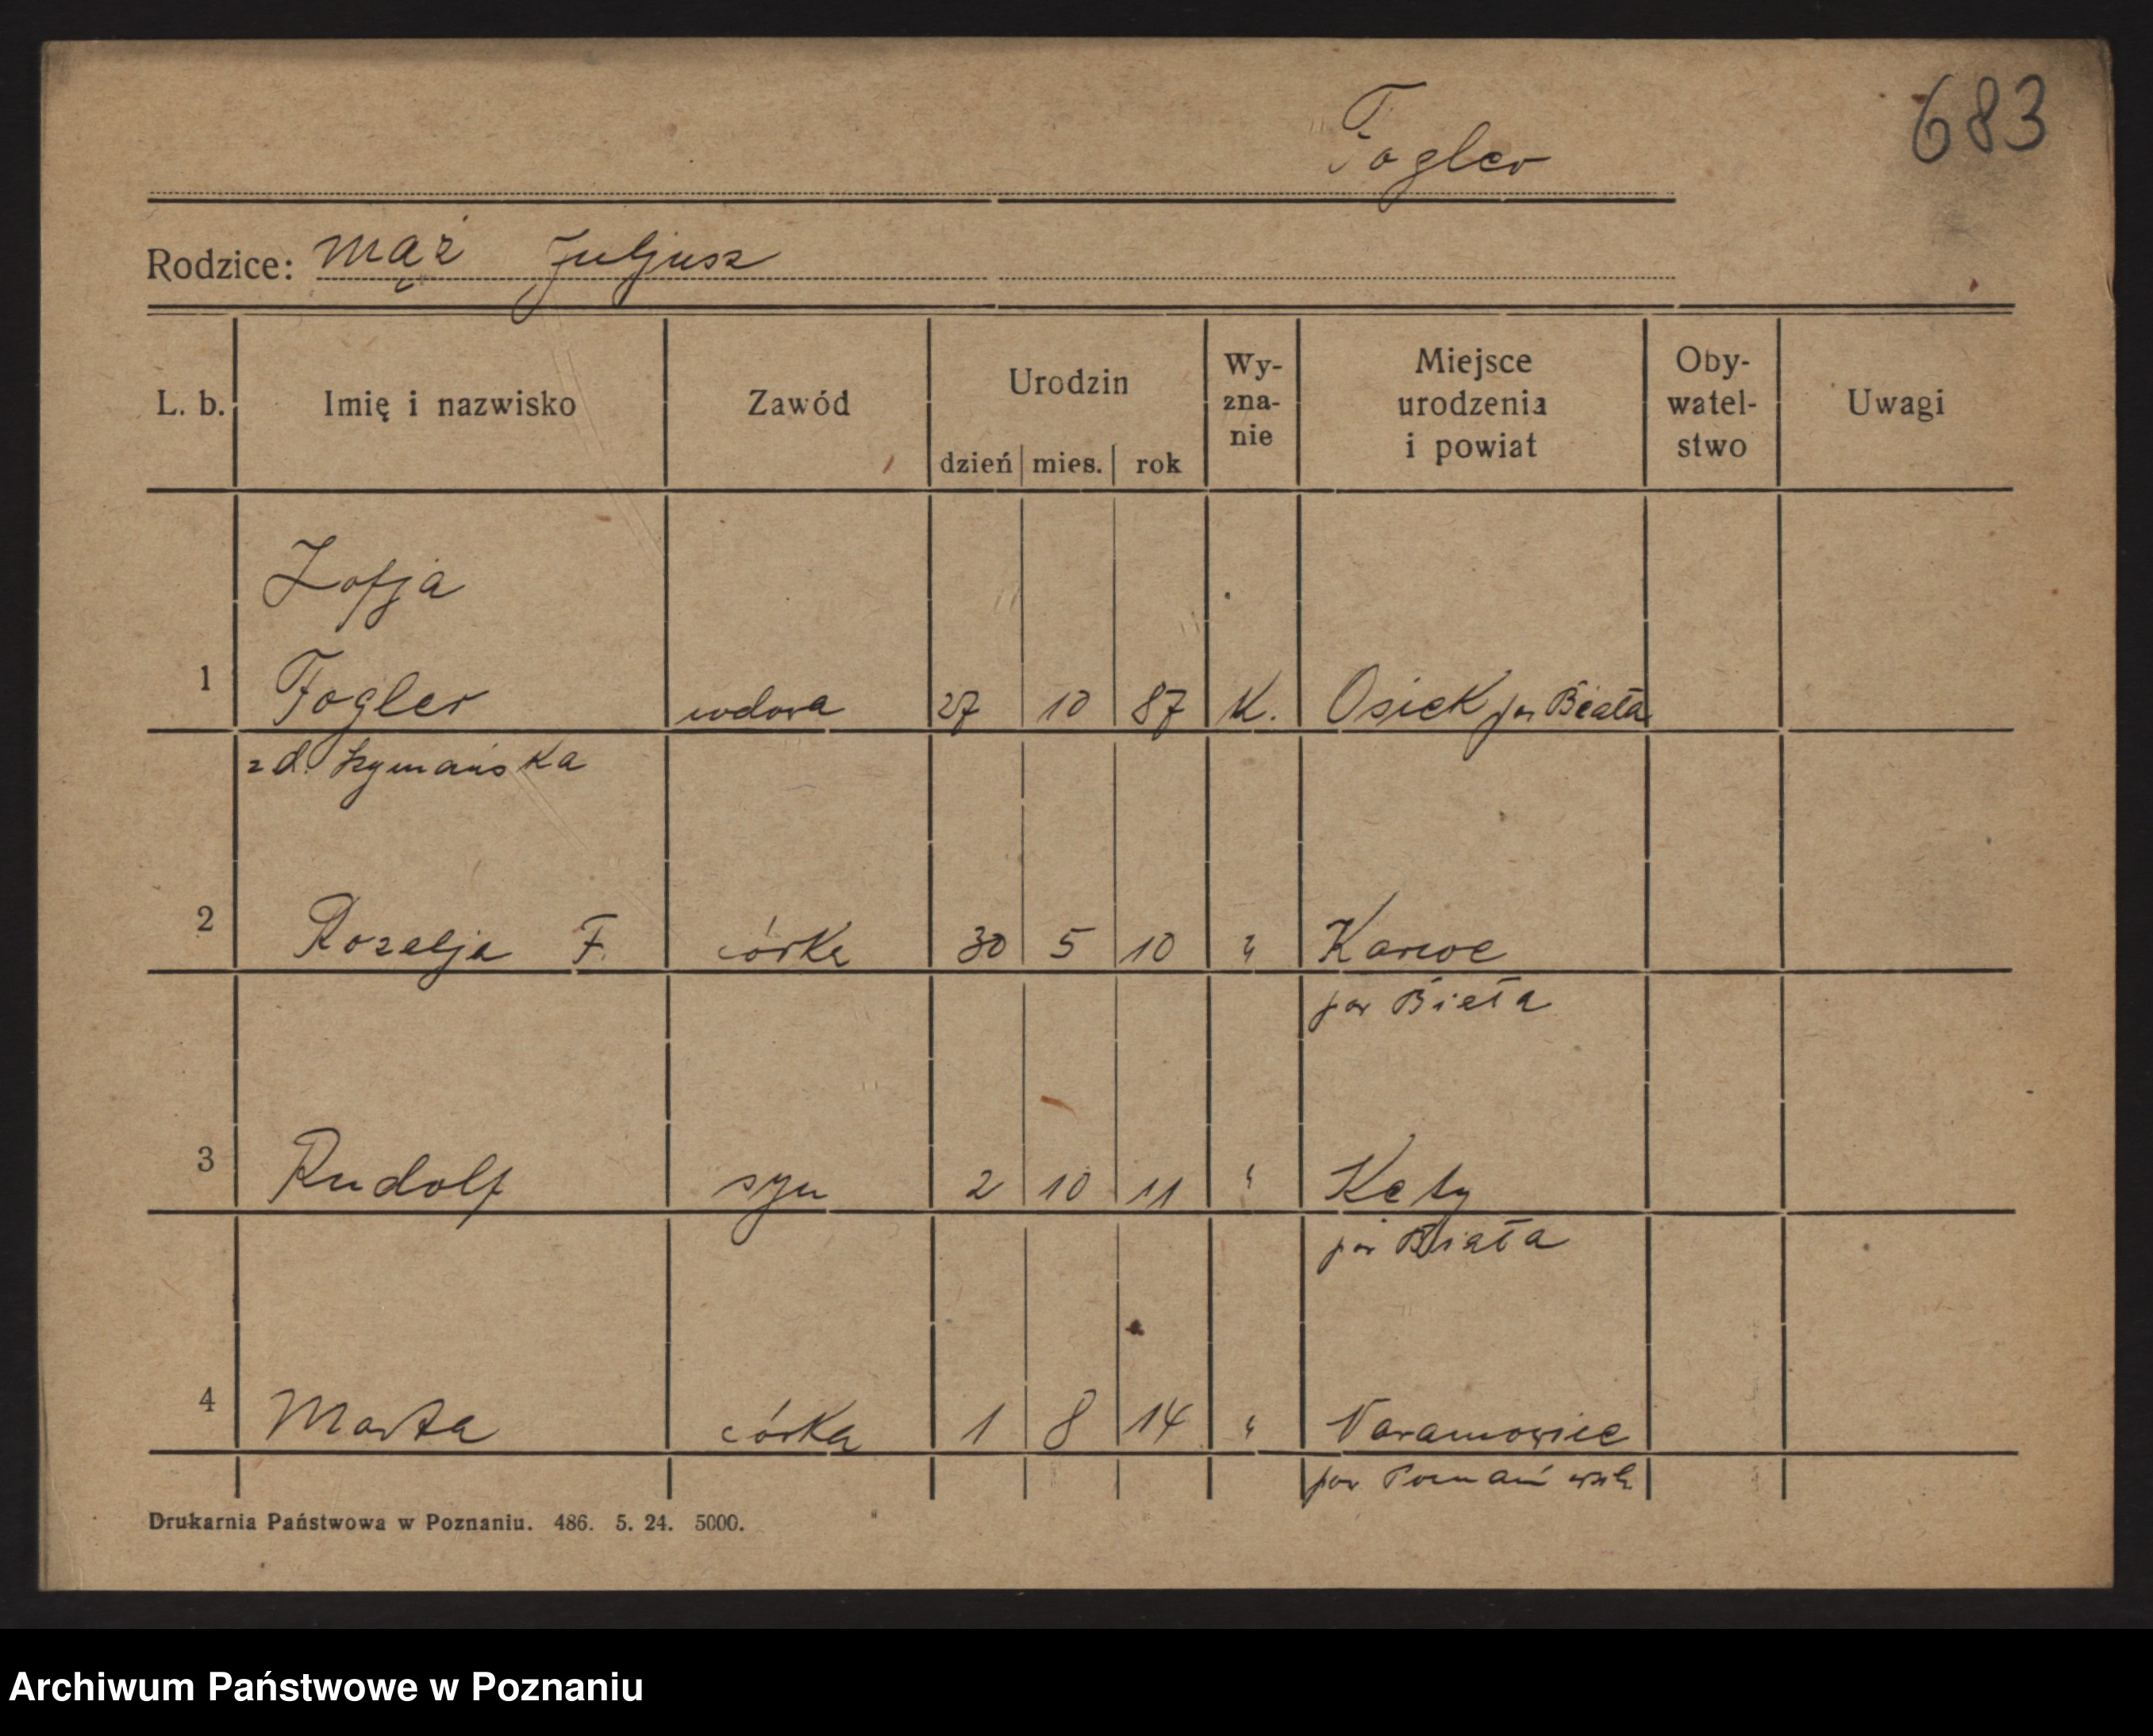 683
Fogler
Rodzice: mąż Juljusz
L. b. Imię i nazwisko Zawód Urodzin dzień mies. rok Wy-zna-nie Miejsce urodzenia i powiat Oby-watel-stwo Uwagi
Zofja
1 Fogler wdowa 27 10 87 K. Osiek pow Biała
z d. Szymańska
2 Rozalja F. córka 30 5 10 " 
pow Biała
3 Rudolf syn 2 10 11 " Kęty
pow Biała
4 Marta córka 1 8 14 " Naramowice
pow Poznań wsch
Drukarnia Państwowa w Poznaniu. 486. 5. 24. 5000.
Archiwum Państwowe w Poznaniu